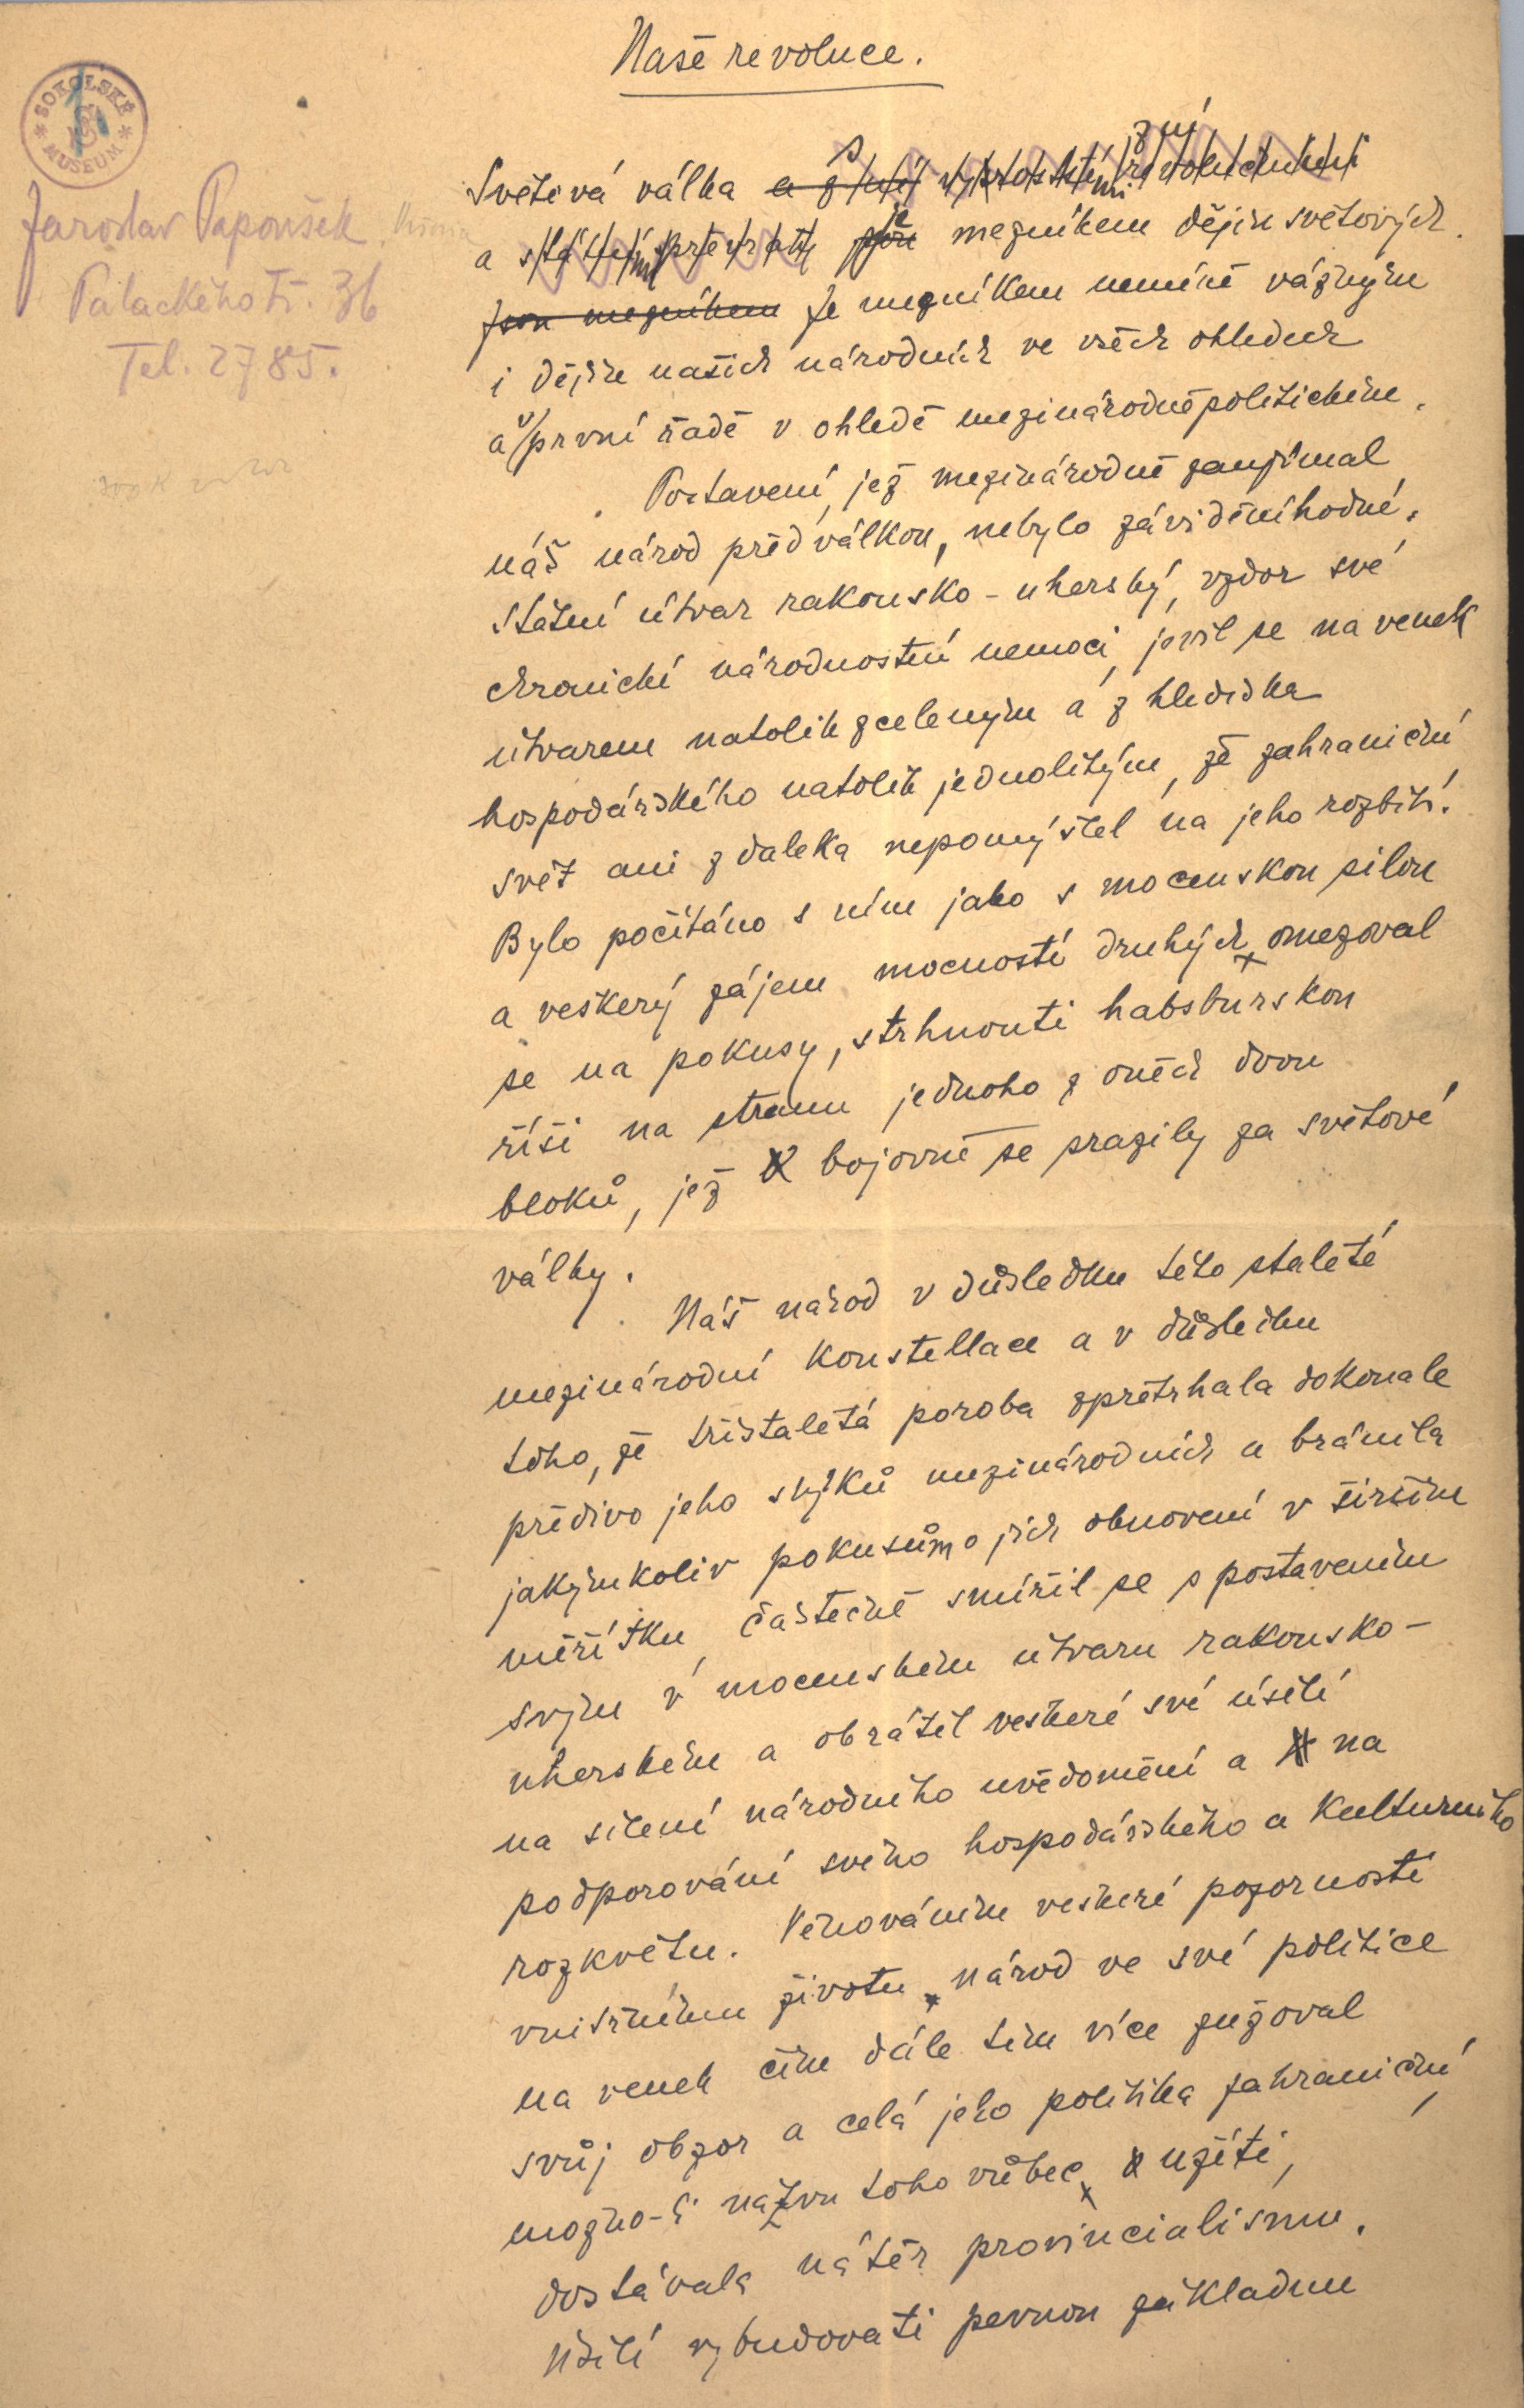 Naše revoluce.
SOKOLSKÉ MUSEUM
Jaroslav Papoušek
Palackého tř. 36
Tel. 2785.
Světová válka a z ní s vyrostlými revolučními
a státními převraty jsou je mezníkem dějin světových.
Jsou mezníkem Je mezníkem neméně vážným
i dějin našich národních ve všech ohledech
a v první řadě v ohledě mezinárodněpolitickém.
Postavení, jež mezinárodně zaujímal
náš národ před válkou, nebylo záviděníhodné.
Státní útvar rakousko-uherský, vzdor své
chronické národnostní nemoci, jevil se na venek
útvarem natolik zceleným a z hlediska
hospodářského natolik jednolitým, že zahraniční
svět ani z daleka nepomýšlel na jeho rozbití.
Bylo počítáno s ním jako s mocenskou silou
a veškerý zájem mocností druhých omezoval
se na pokusy, strhnouti habsburskou
říši na stranu jednoho z oněch dvou
bloků, jež bojovně se srazily za světové
války.
Náš národ v důsledku této staleté
mezinárodní konstellace a v důsledku
toho, že třistaletá poroba zpřetrhala dokonale
předivo jeho styků mezinárodních a bránila
jakýmkoliv pokusům o jich obnovení v širším
měřítku, částečně smířil se s postavením
svým v mocenském útvaru rakousko-
uherském a obrátil veškeré své úsilí
na sílení národního uvědomění a na
podporování svého hospodářského a kulturního
rozkvětu. Věnováním veškeré pozornosti
vnitřnímu životu národ ve své politice
na venek čím dále tím více zužoval
svůj obzor a celá jeho politika zahraniční,
možno-li názvu toho vůbec užíti,
dostávala nátěr provincialismu.
Úsilí vybudovati pevnou základnu